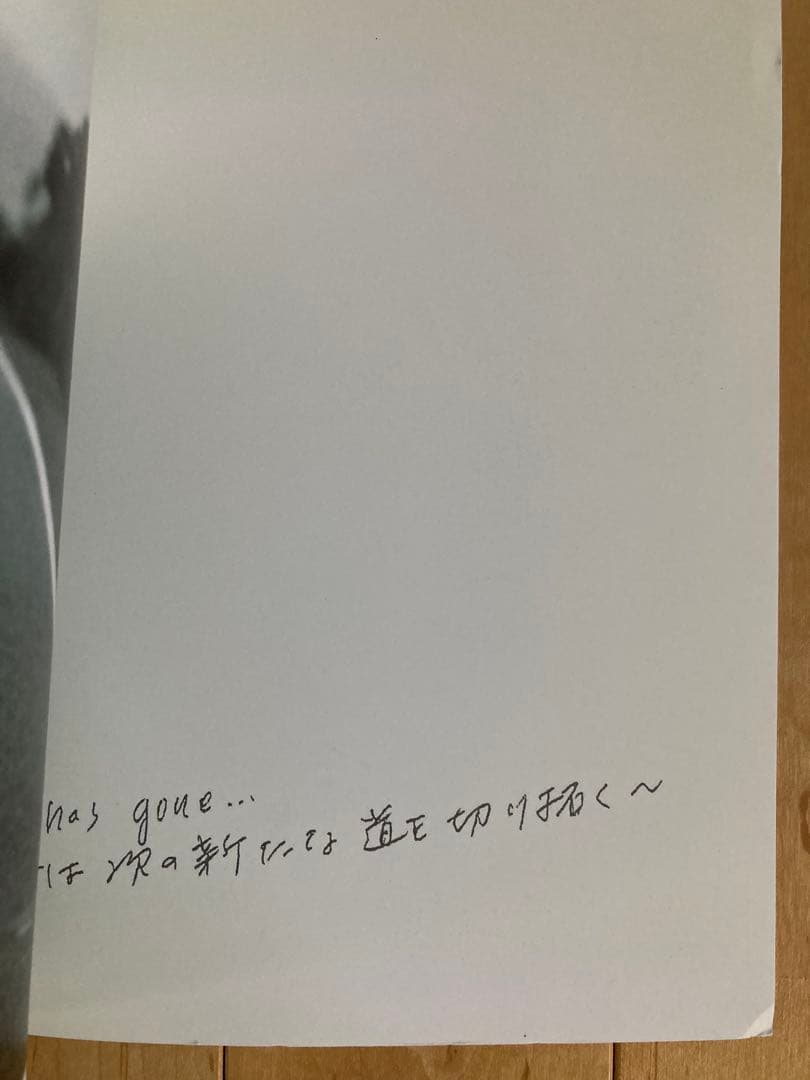 has gone...
は次の新たな道を切り拓く~